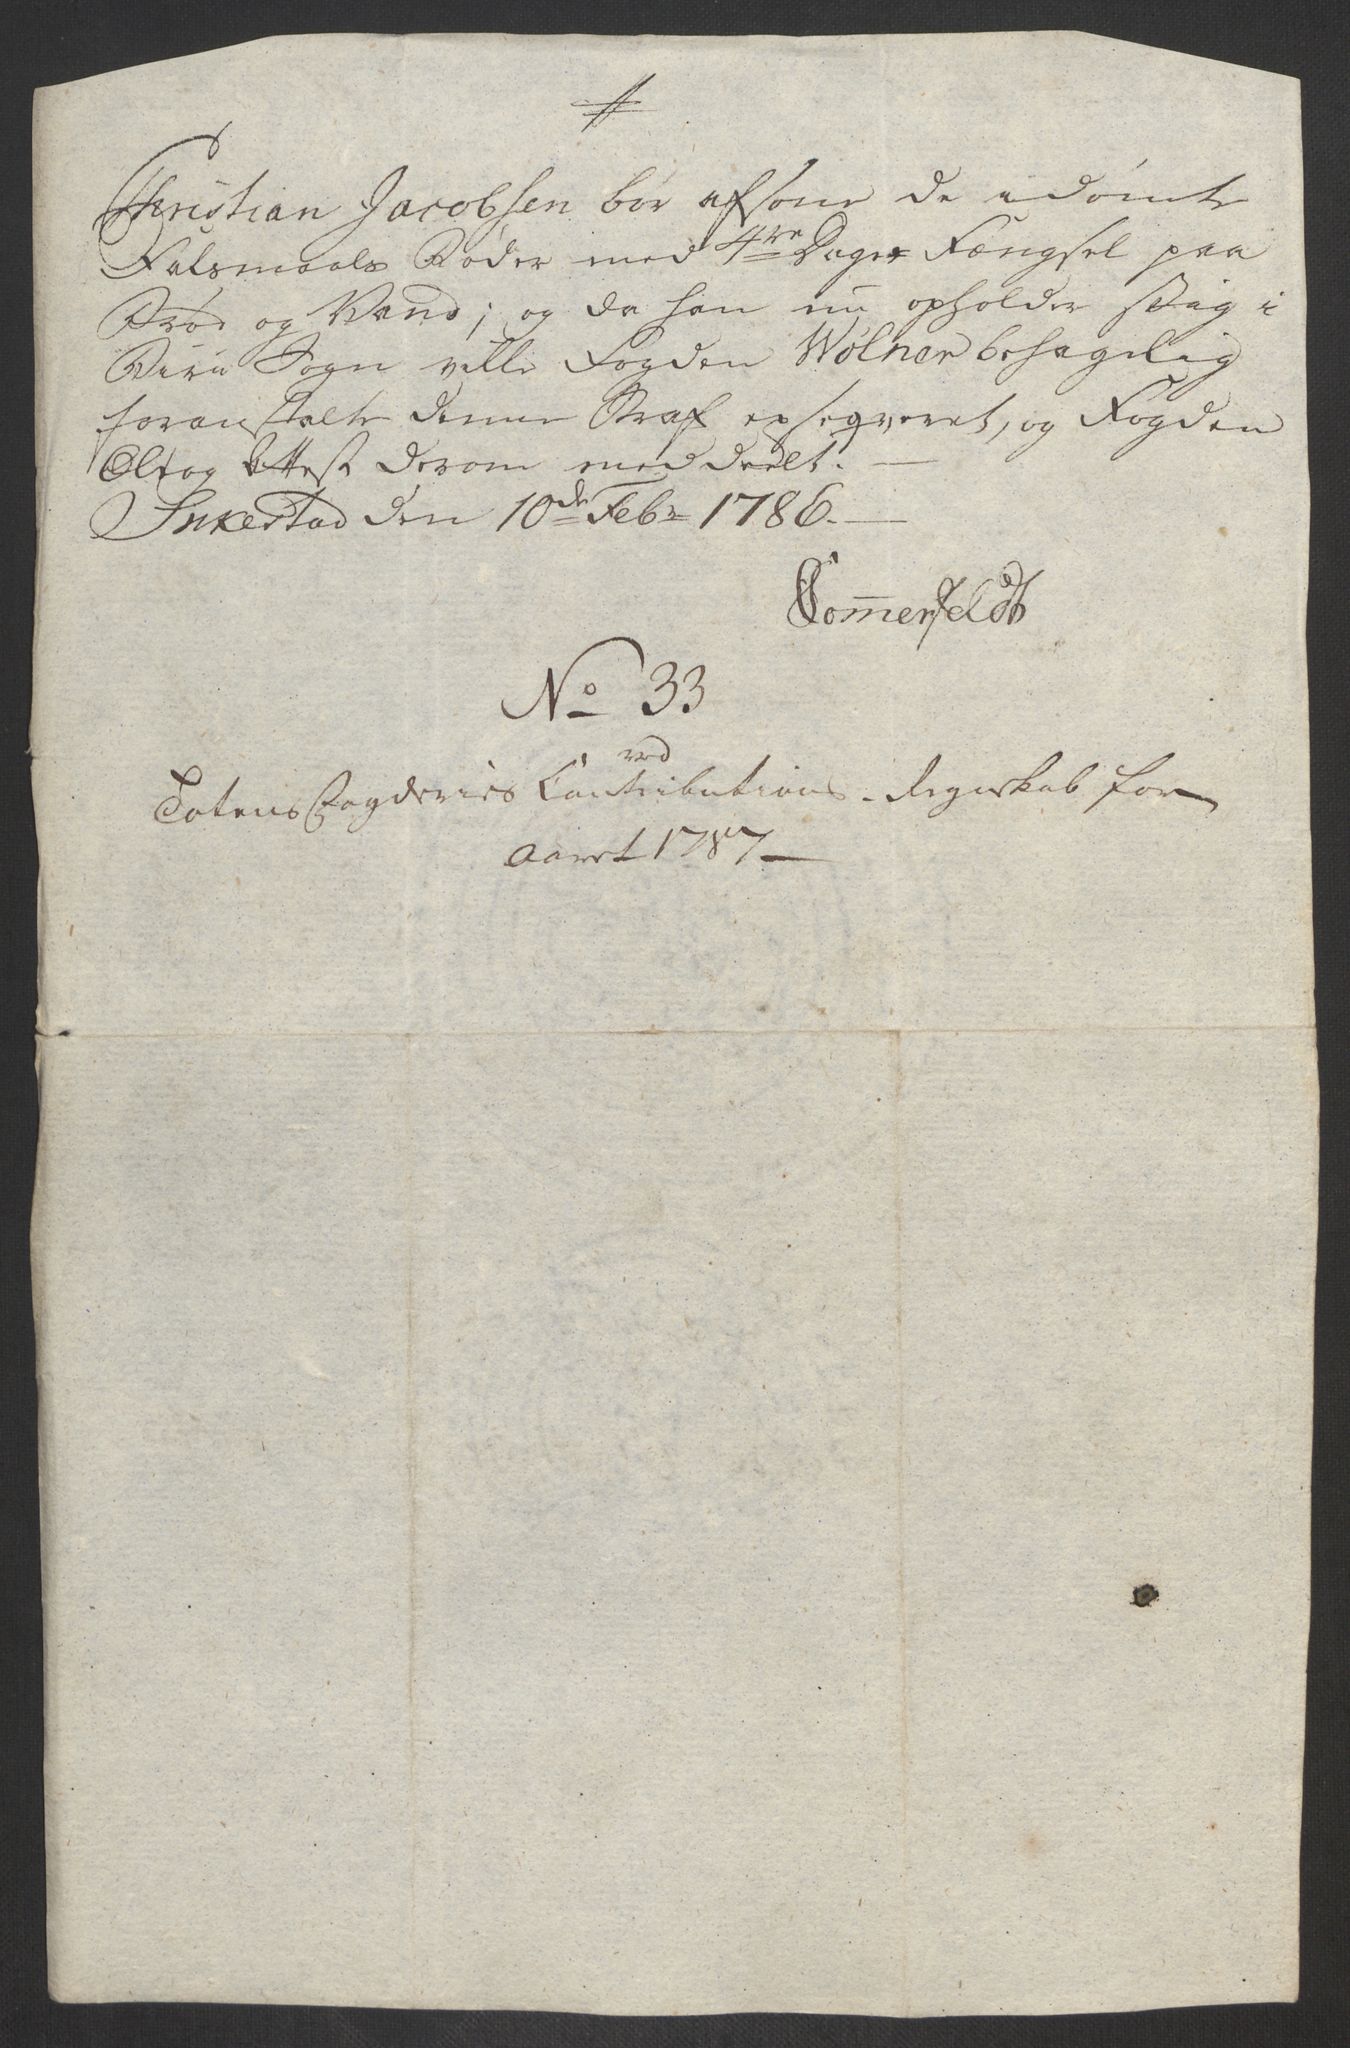 Christian Jacobsen bør afsone de idømte
Falsmaals Bøder med 4re Dages Fængsel paa
Brød og Vand; og da han nu opholder sig i
Birie Sogn ville Fogden Wølner behagelig
foranstalte denne Straf exseqveret, og Fogden
Attest derom meddeelt. —
den 10de Febr 1786. —
Somerfeldt
No 33
ved
Totens Fogderies Contributions-Regnskab for
Aaret 1787 —